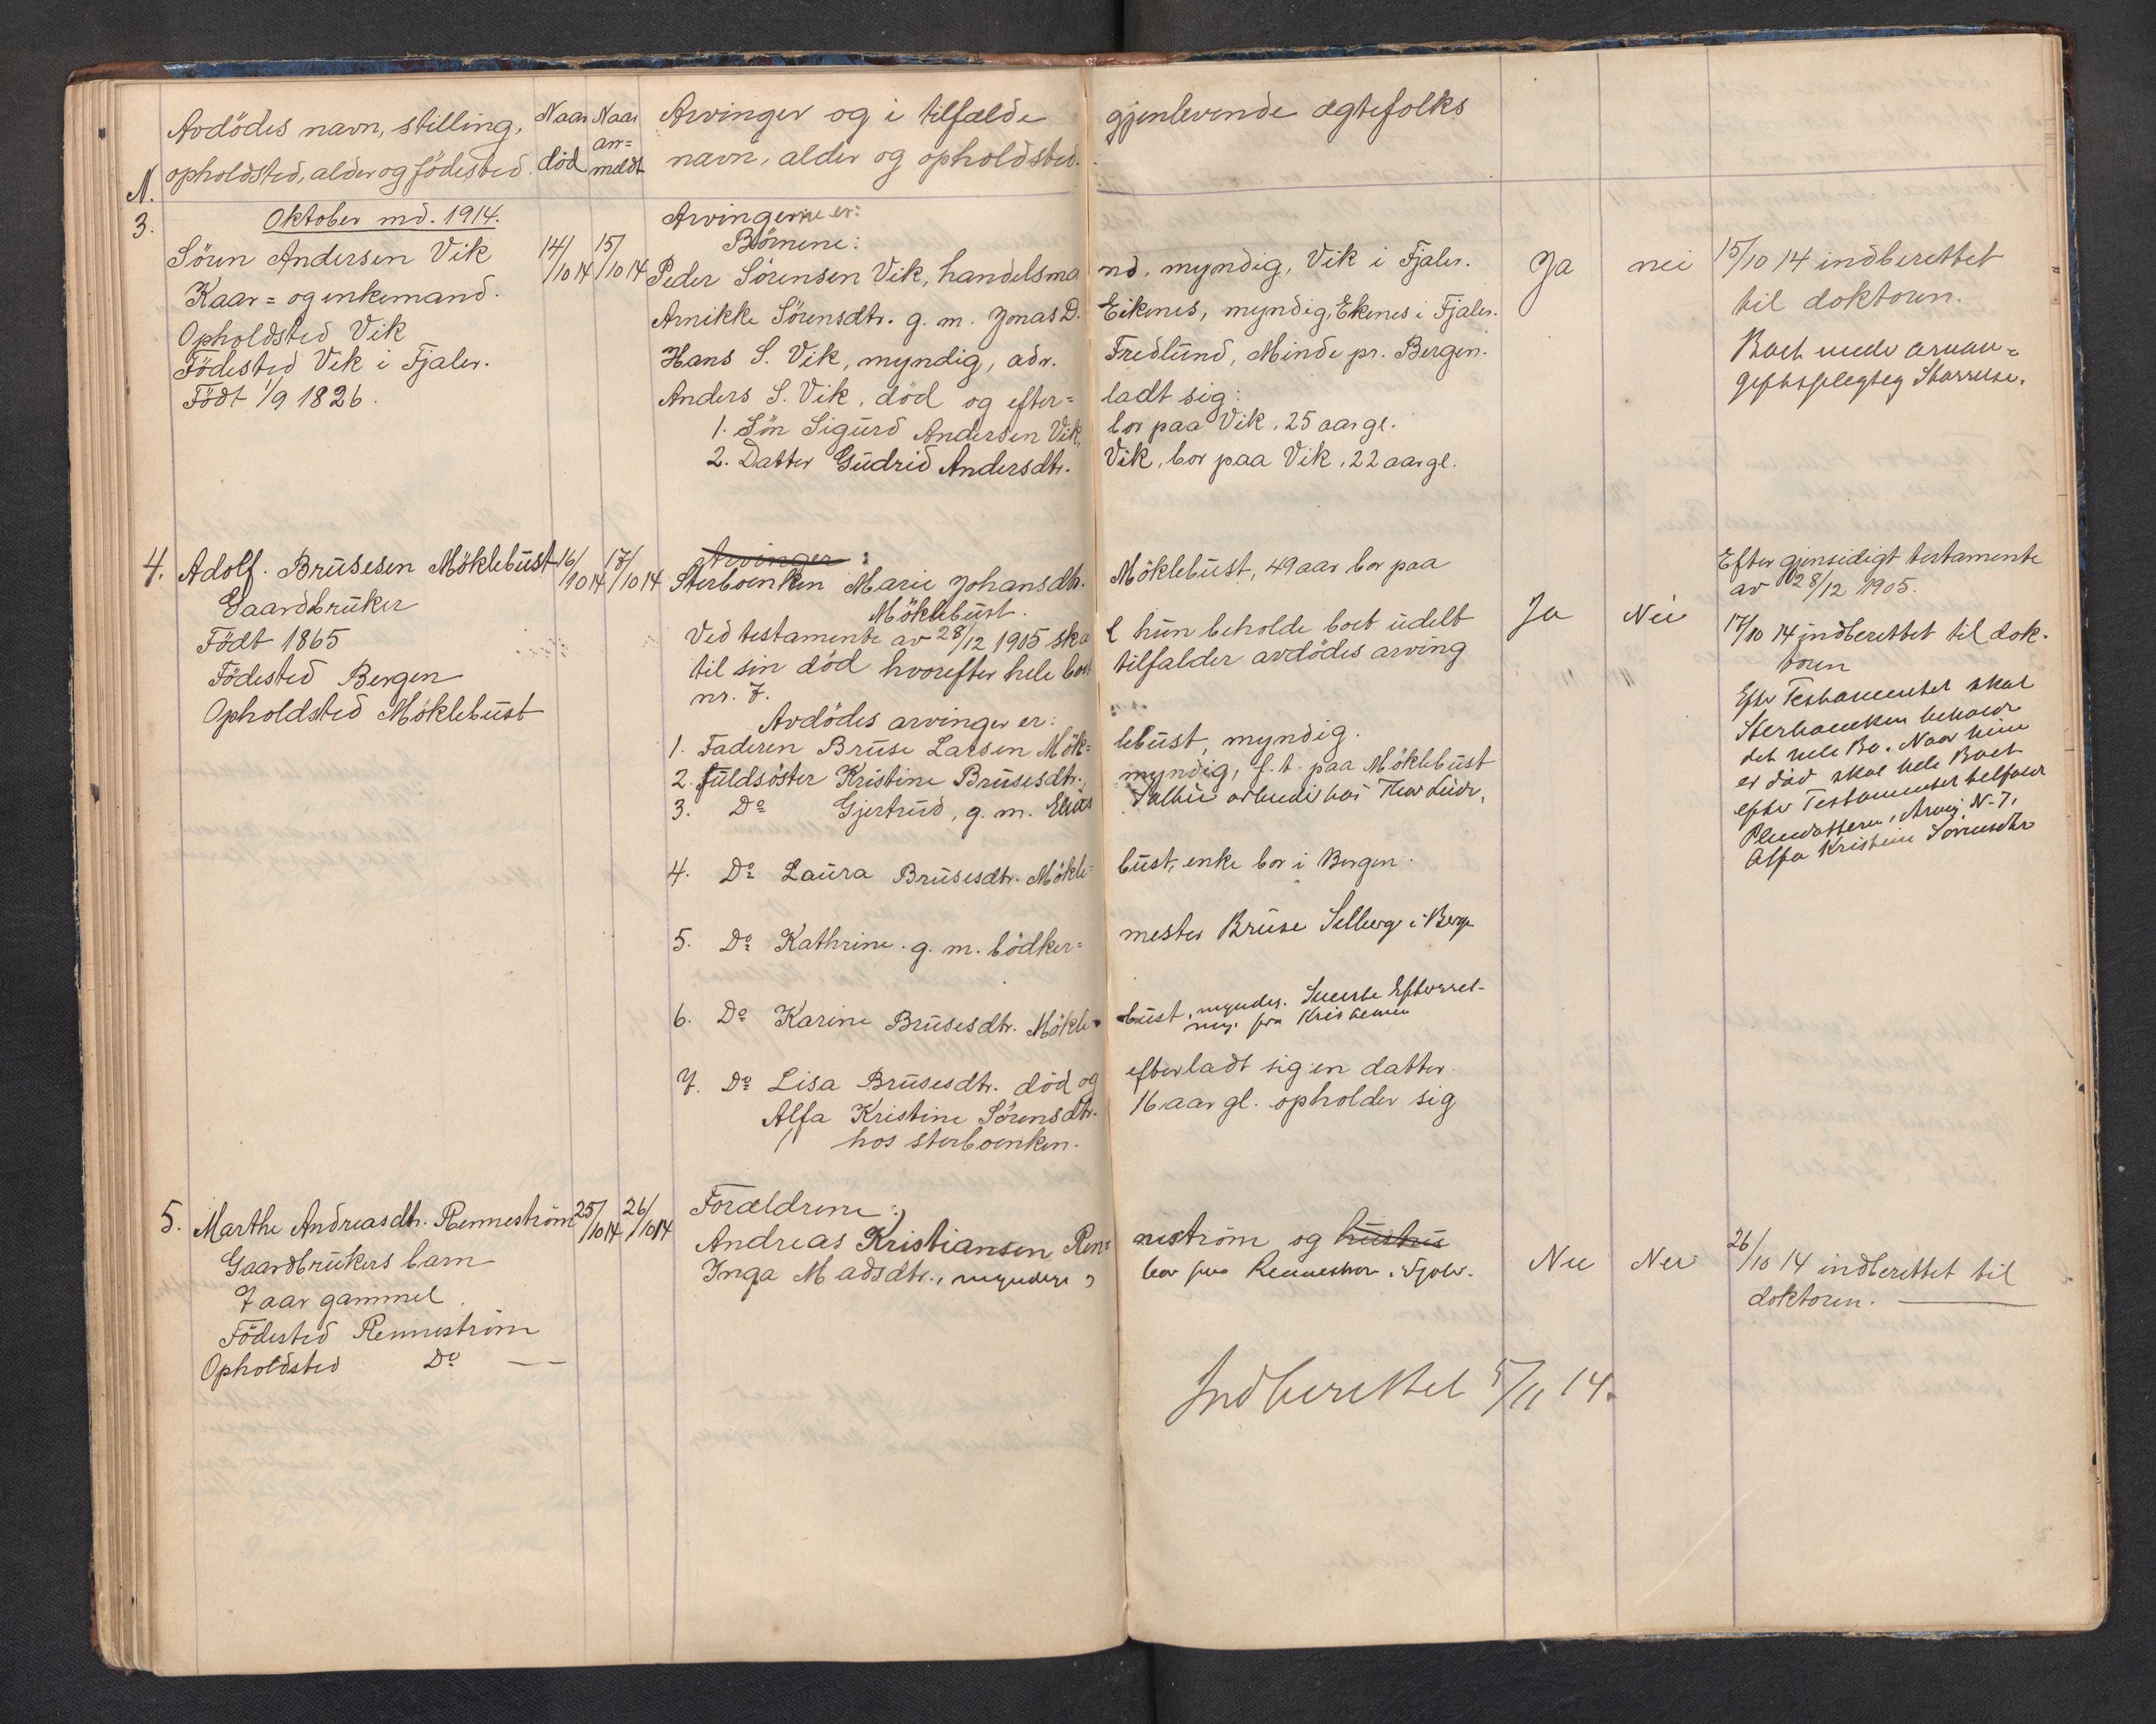 N.
Avdödes navn, stilling,
opholdsted, alder og födested.
Naar
död
Naar
an=
meldt
Arvinger og i tilfælde gjenlevende ægtefolks
navn, alder og opholdsted.
3.
Oktober md. 1914.
Sören Andersen Vik
Kaar= og enkemand.
Opholdsted Vik
Födested Vik i Fjaler.
Födt 1/9 1826.
14/10 14
15/10 14
Arvingerne er:
Börnene:
Peder Sörensen Vik, handelsmand, myndig, Vik i Fjaler.
Arnikke Sörensdtr. g. m. Jonas D. Eikenes, myndig, Ekenes i Fjaler.
Hans S. Vik, myndig, adr. Fredlund, Minde pr. Bergen.
Anders S. Vik, död og efter= ladt sig:
1. Sön Sigurd Andersen Vik, bor paa Vik, 25 aar gl.
2. Datter Gudrid Andersdtr. Vik, bor paa Vik, 22 aar gl.
Ja
nei
15/10 14 indberettet
til doktoren.
Boet uede arvau=
giftspligtig Størrelse.
4.
Adolf Brusesen Möklebust
Gaardbruker
Födt 1865
Födested Bergen
Opholdsted Möklebust
16/10 14
17/10 14
Arvinger:
Sterboenken Marie Johansdtr. Möklebust, 49 aar bor paa
Möklebust.
Ved testamente av 28/12 1905 skal hun beholde boet udelt
til sin död hvorefter hele boet tilfalder avdödes arving
nr. 7.
Avdödes arvinger er:
1. Faderen Bruse Larsen Mök= lebust, myndig.
2. Fuldsöster Kristine Brusesdtr. myndig, f. t. paa Möklebust
3. Do Gjertrud, g. m. Elias
4. Do Laura Brusesdtr. Mökle= bust, enke bor i Bergen.
5. Do Kathrine g. m. bödker= mester Bruse Selberg i Berge
6. Do Karine Brusesdtr. Mökle= bust, myndig. Seneste Efterret-
ning fra Kristiania
7. Do Lisa Brusesdtr. död og efterladt sig en datter
Alfa Kristine Sörensdtr. 16 aar gl. opholder sig
hos sterboenken.
Ja
Nei
Efter gjensidigt testamente
av 28/12 1905.
17/10 14 indberettet til dok-
toren
Efter Testamentet skal
Sterboenken behold
det hele Bo. Naar hun
er död skal hele Boet
efter Testamentet tilfald
Pleiedatteren, Arving N-7,
Alfa Kristine Sörensdtr
5.
Marthe Andreasdtr. Renneström
Gaardbrukers barn
7 aar gammel
Födested Renneström
Opholdsted Do — —
25/10 14
26/10 14
Forældrene:
Andreas Kristiansen Ren= neström og hustru
Inga Madsdtr., myndige, bor paa Rennestrøm i Fjaler.
Nei
Nei
26/10 14 indberettet til
doktoren.
Indberettet 5/11 14.